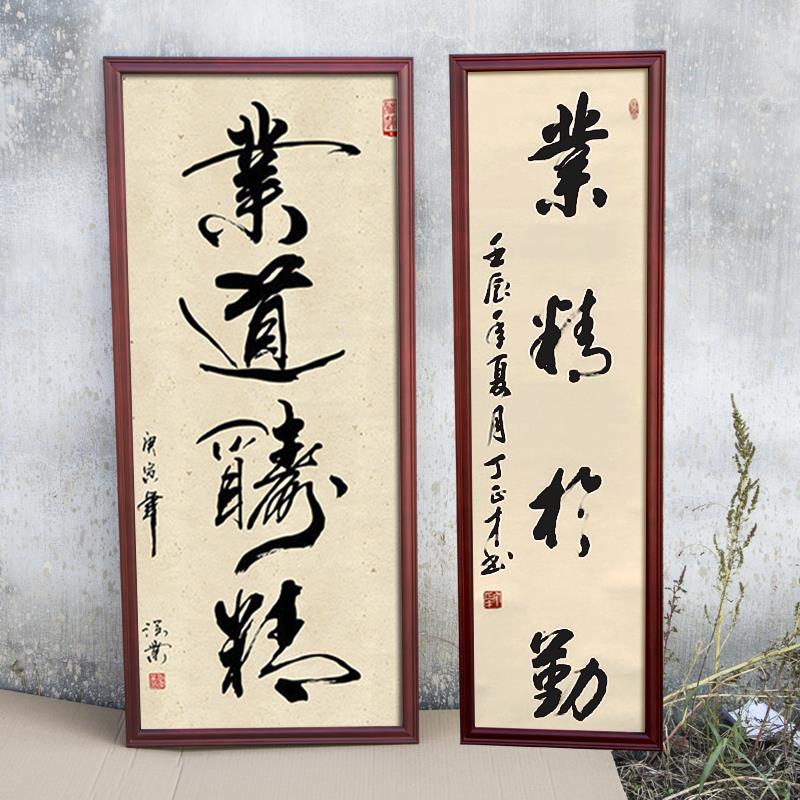 業道醻精
庚寅年
業精於勤
壬辰年夏月丁正才书